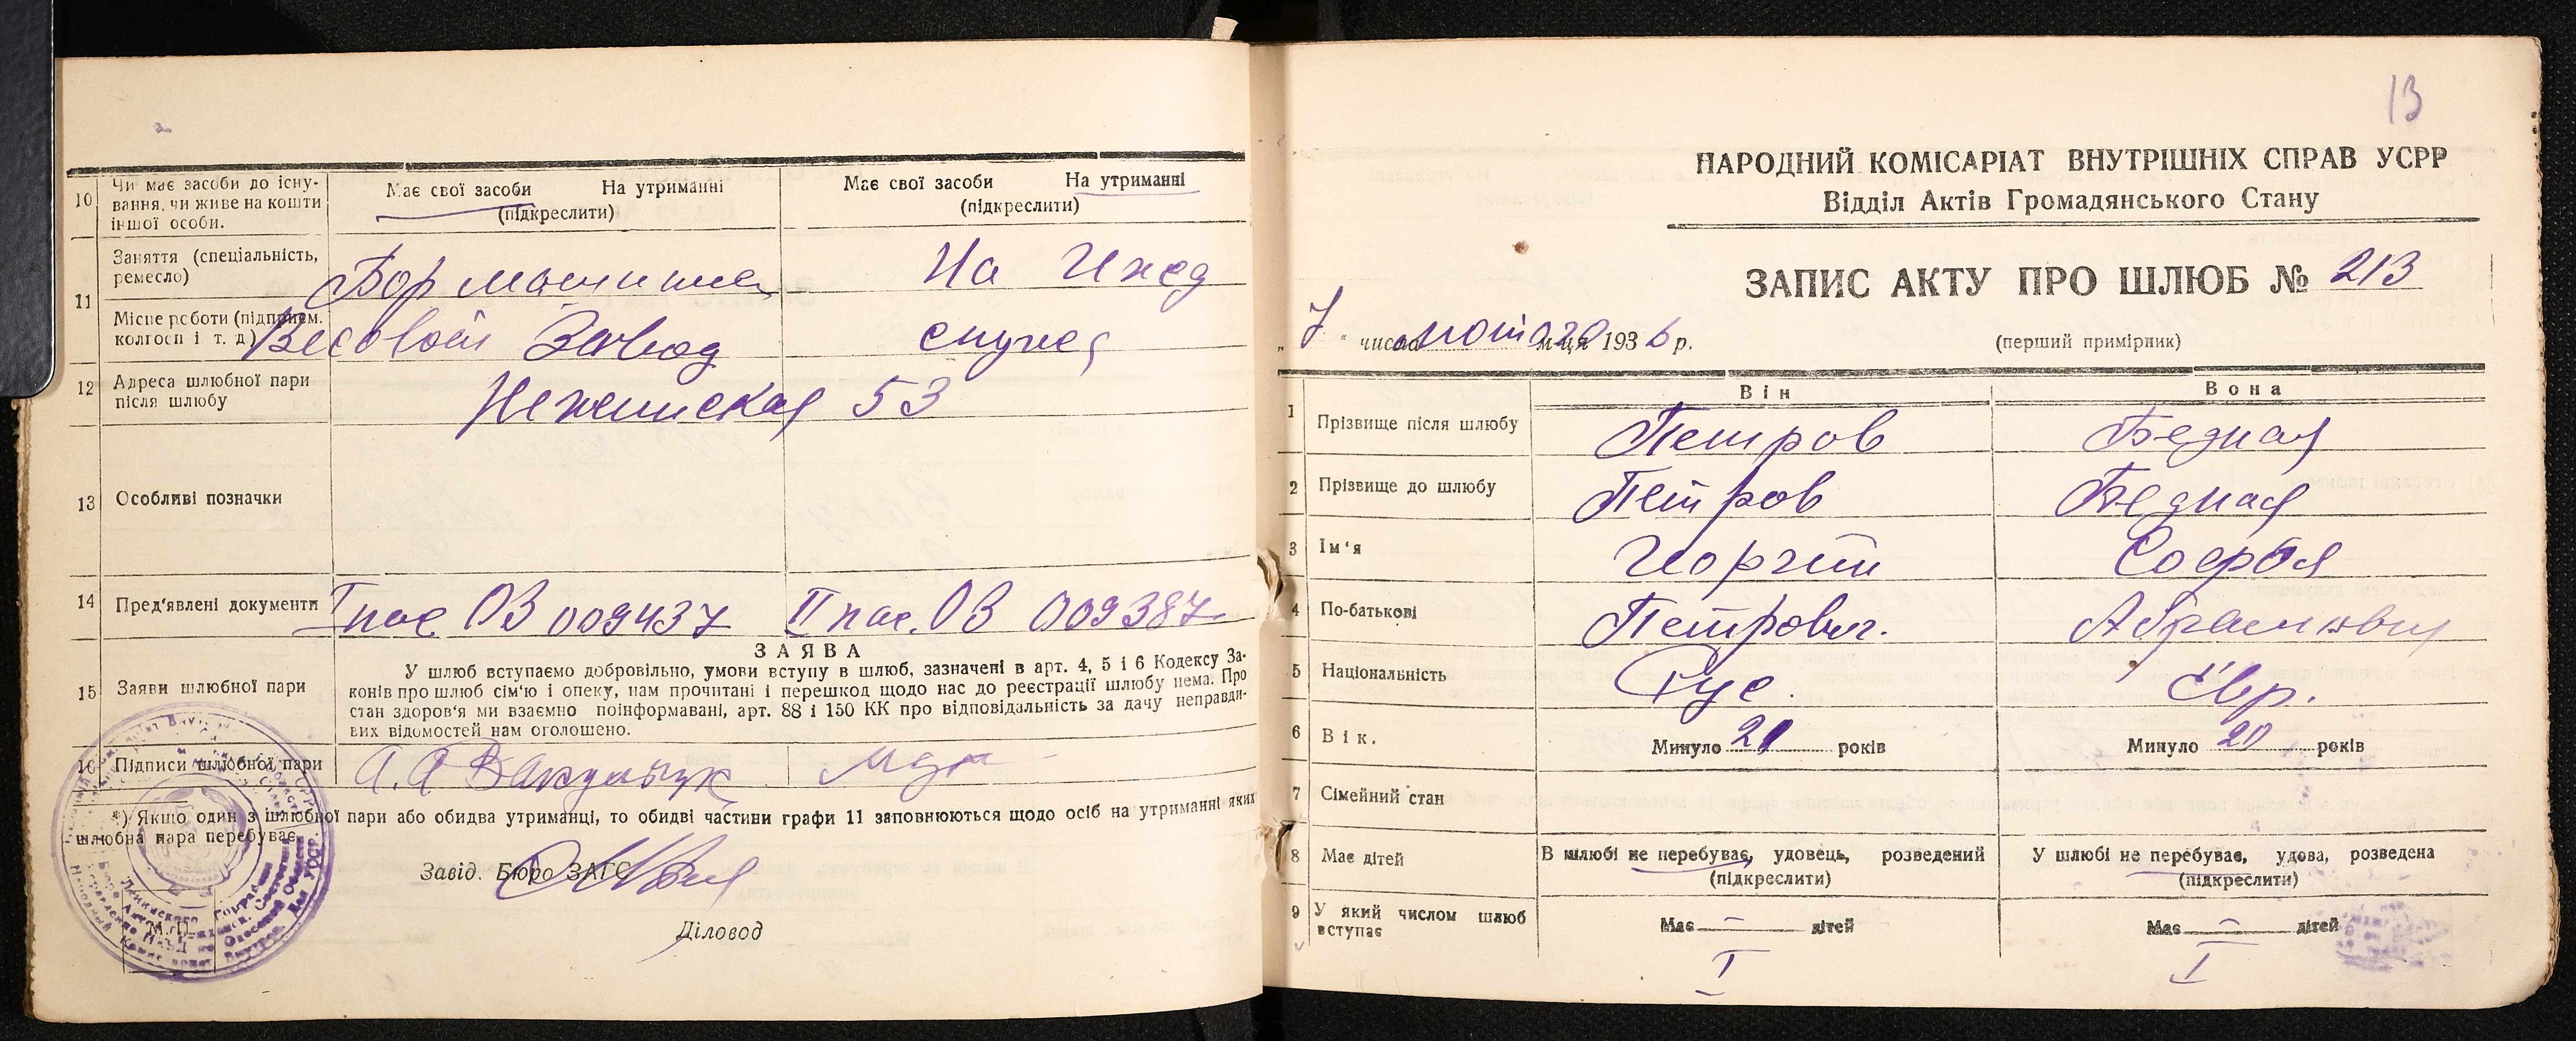 10
Чи має засоби до існу-
вання, чи живе на кошти
іншої особи.
Має свої засоби На утриманні
(підкреслити)
Має свої засоби На утриманні
(підкреслити)
11
Заняття (спеціальність,
ремесло)
На Ижд
Місце роботи (підприєм.
колгосп і т. д.)
Весовой Завод
12
Адреса шлюбної пари
після шлюбу
Неженская 53
13
Особливі позначки
14
Пред'явлені документи
I пас. ОЗ 009437 II пас. ОЗ 009387
15
Заяви шлюбної пари
ЗАЯВА
У шлюб вступаємо добровільно, умови вступу в шлюб, зазначені в арт. 4, 5 і 6 Кодексу За-
конів про шлюб сім'ю і опеку, нам прочитані і перешкод щодо нас до реєстрації шлюбу нема. Про
стан здоров'я ми взаємно поінформавані, арт. 88 і 150 КК про відповідальність за дачу неправди-
вих відомостей нам оголошено.
16
Підписи шлюбної пари
*) Якщо один з шлюбної пари або обидва утриманці, то обидві частини графи 11 заповнюються щодо осіб на утриманні яких
шлюбна пара перебуває.
Завід. Бюро ЗАГС
Діловод
М. П.
13
НАРОДНИЙ КОМІСАРІАТ ВНУТРІШНІХ СПРАВ УСРР
Відділ Актів Громадянського Стану
ЗАПИС АКТУ ПРО ШЛЮБ № 213
„ 7 " число лютого м-ця 1936 р.
(перший примірник)
Він Вона
1 Прізвище після шлюбу Петров Бедная
2 Прізвище до шлюбу Петров Бедная
3 Ім'я Георгий Софья
4 По-батькові Петрович. Абрамовна
5 Національність Рус. Євр.
6 Вік. Минуло 21 років Минуло 20 років
7 Сімейний стан
8 Має дітей
В шлюбі не перебуває, удовець, розведений
(підкреслити)
У шлюбі не перебуває, удова, розведена
(підкреслити)
9 У який числом шлюб
вступає
Має — дітей Має — дітей
I I